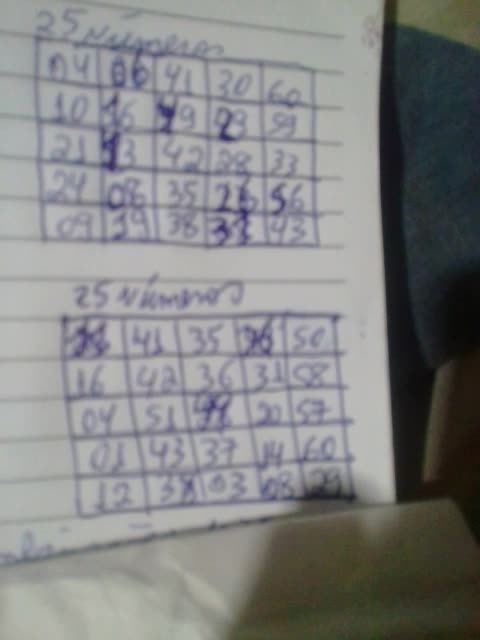 25 Números
04 06 41 30 60
10 16 49 23 59
21 13 42 28 33
24 08 35 26 56
09 19 38 43
25 Números
41 35 50
16 42 36 31 58
04 51 20 57
01 43 37 14 60
12 38 03 08 29